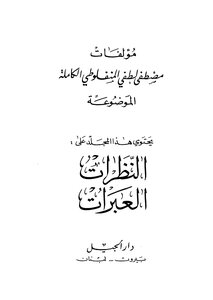 مؤلفات
مصطفى لطفي المنفلوطي الكاملة
الموضوعة
يحتوي هذا المجلد على:
النظرات
العبرات
دار الجيل
بيروت - لبنان